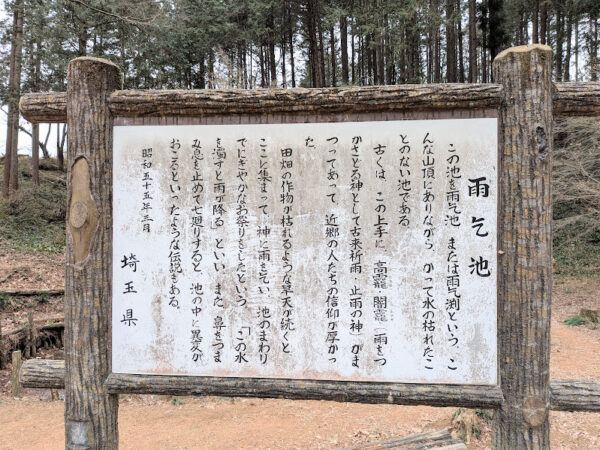 雨乞池
この池を雨乞池 または雨乞渕という。こ
んな山頂にありながら かつて水の枯れたこ
とのない池である。
古くは、この上手に、高龗・闇龗（雨をつ
かさどる神として古来祈雨 止雨の神）がま
つってあって 近郷の人たちの信仰が厚かっ
た。
田畑の作物が枯れるような旱天が続くと
ここに集まって 神に雨を乞い 池のまわり
でにぎやかなお祭りをしたという。「この水
を濁すと雨が降る」といい、また、鼻をつま
み息を止めて七廻りすると 池の中に異変が
おこるといったような伝説もある。
昭和五十五年三月
埼玉県